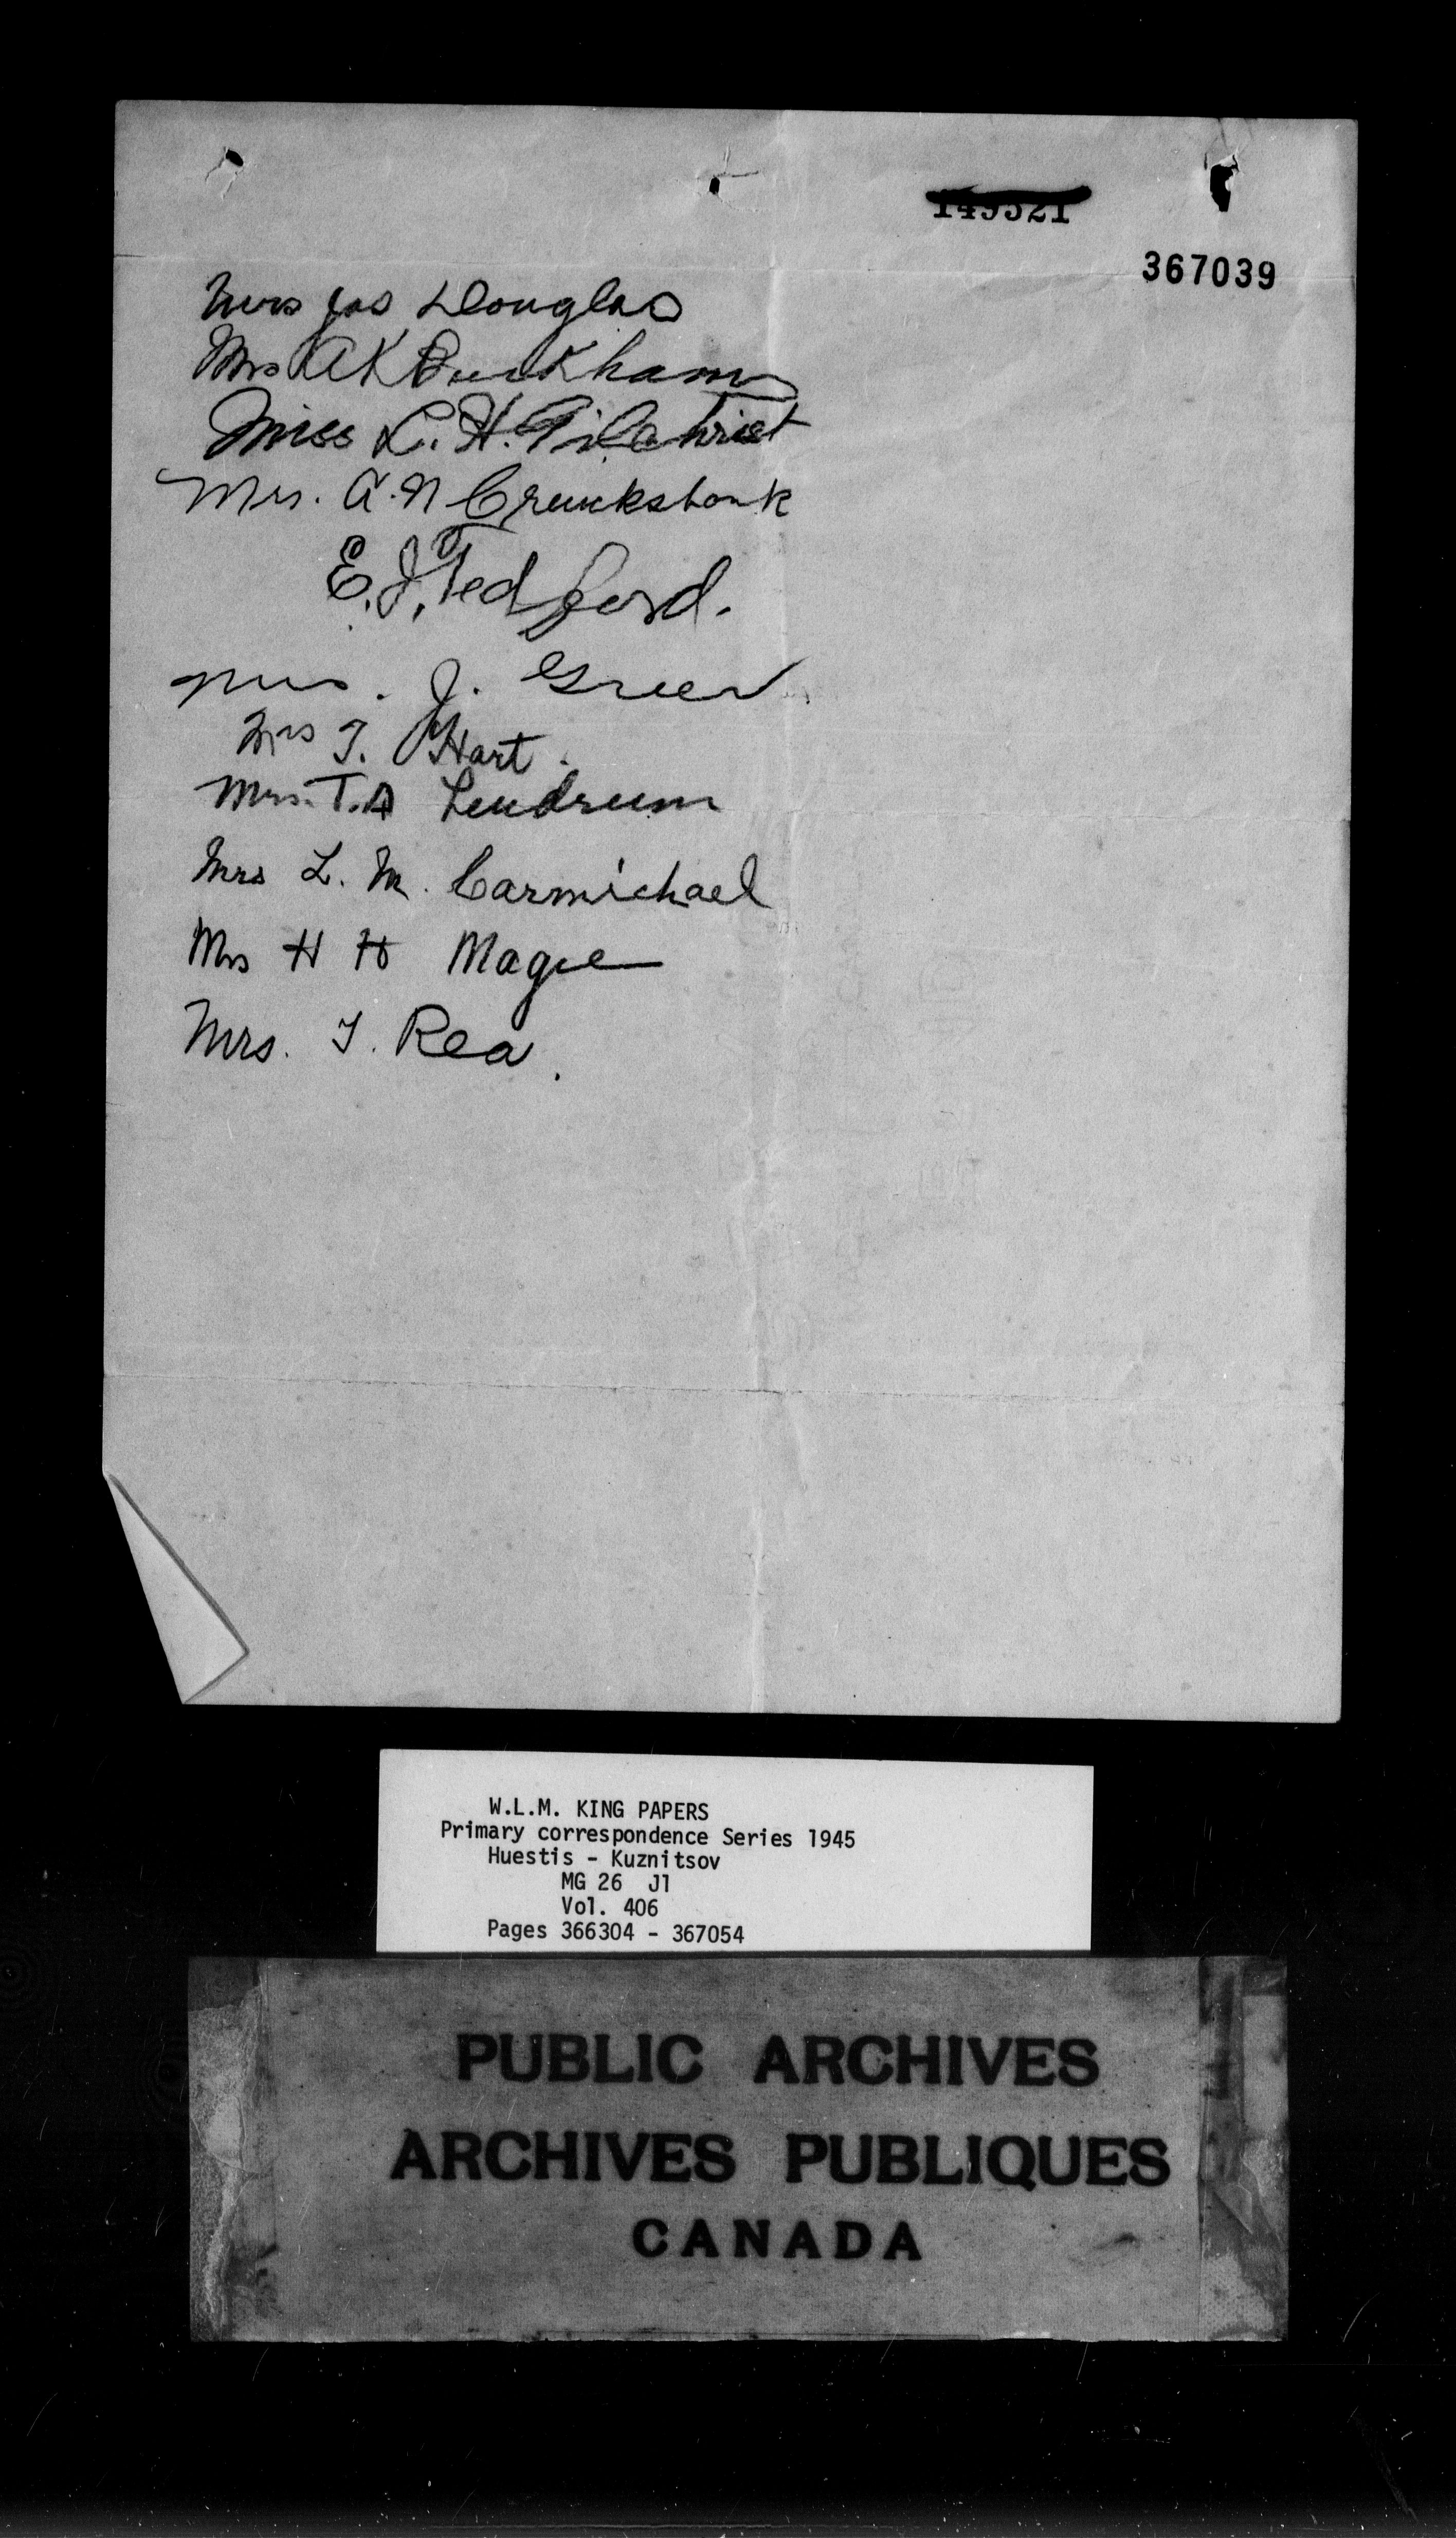 149521
367039
Mrs Jas Douglas
Mrs A K Buckham
Miss L. H. Gilchrist
Mrs. A. N Cruickshank
E. J. Tedford.
Mrs. J. Green
Mrs T. Hart.
Mrs. T. A Lendrum
Mrs L. M. Carmichael
Mrs H H Magee
Mrs. T. Rea.
W.L.M. KING PAPERS
Primary correspondence Series 1945
Huestis - Kuznitsov
MG 26 J1
Vol. 406
Pages 366304 - 367054
PUBLIC ARCHIVES
ARCHIVES PUBLIQUES
CANADA